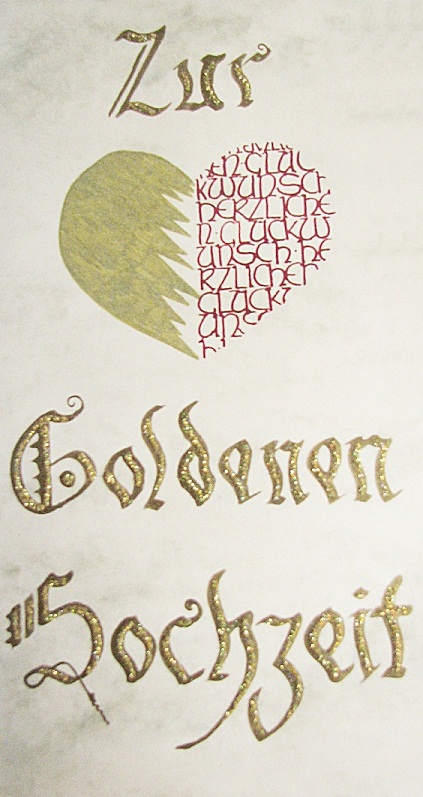 Zur
EN · GLÜC
KWUNSCH
HERZLICHE
N · GLÜCKW
UNSCH · HE
RZLICHER
GLÜCK
UNS
Goldenen
Hochzeit